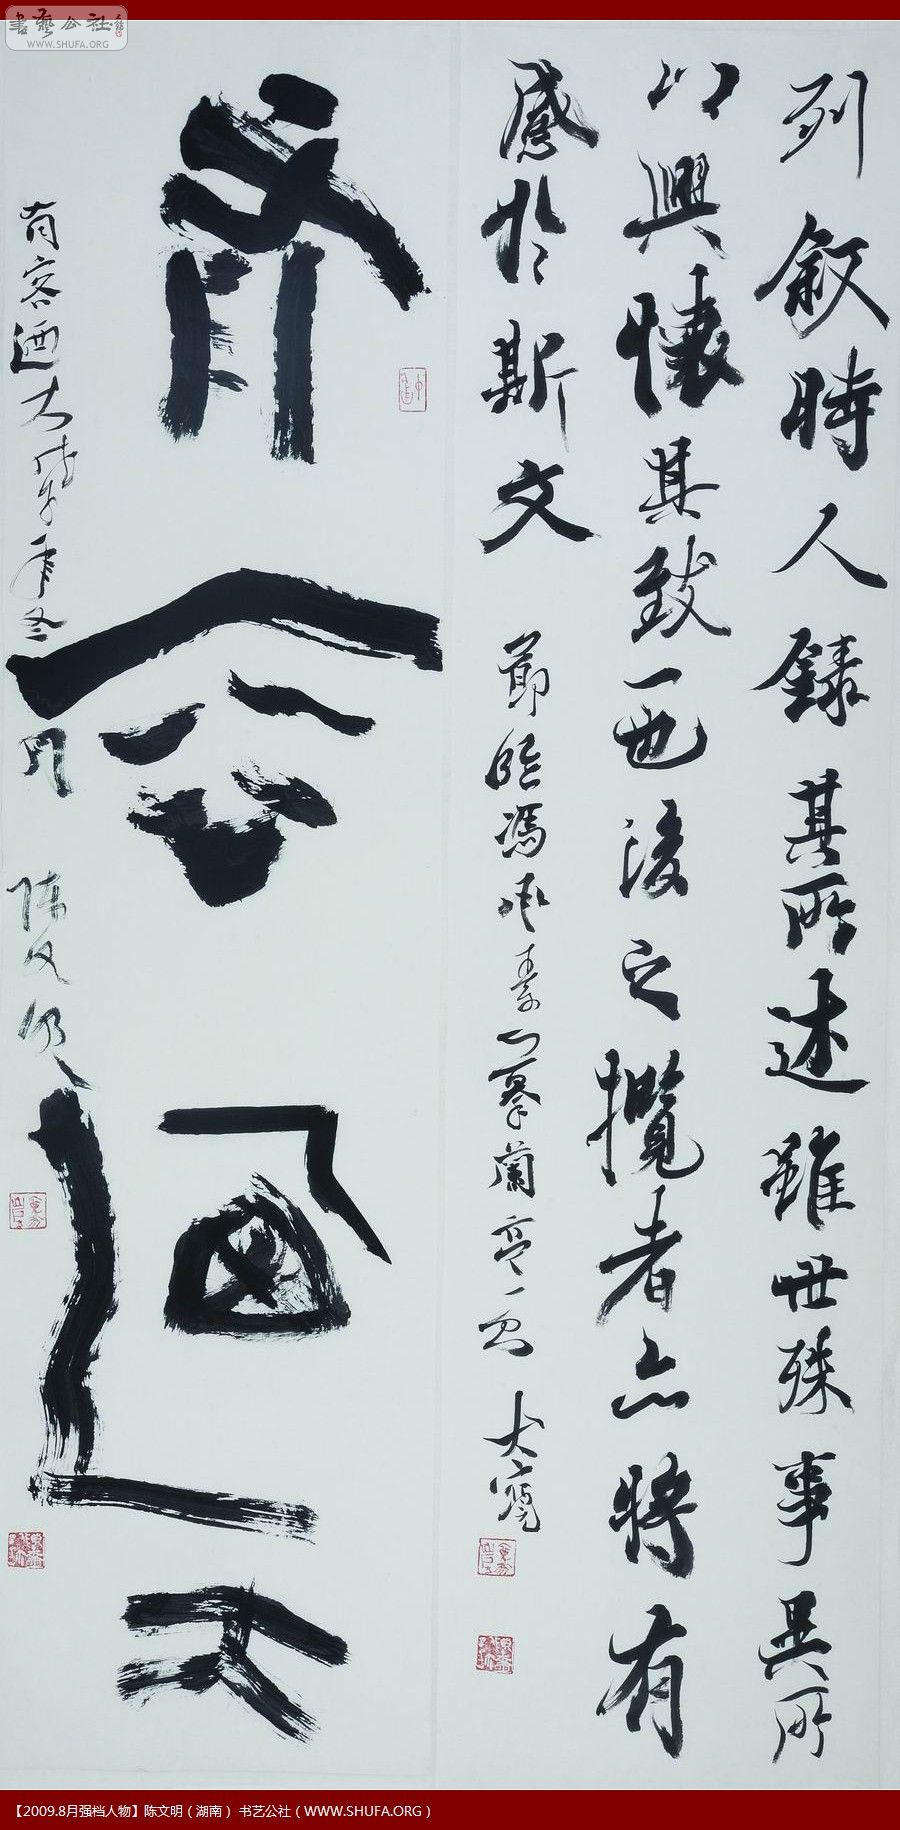 書藝公社
WWW.SHUFA.ORG
列叙時人録其所述雖世殊事異所
以興懷其致一也後之攬者亦將有
感於斯文 節臨馮承素勾摹蘭亭一
有客迺大
有客迺大 戊子年冬月 陳文明
【2009.8月强档人物】陈文明（湖南） 书艺公社（WWW.SHUFA.ORG）